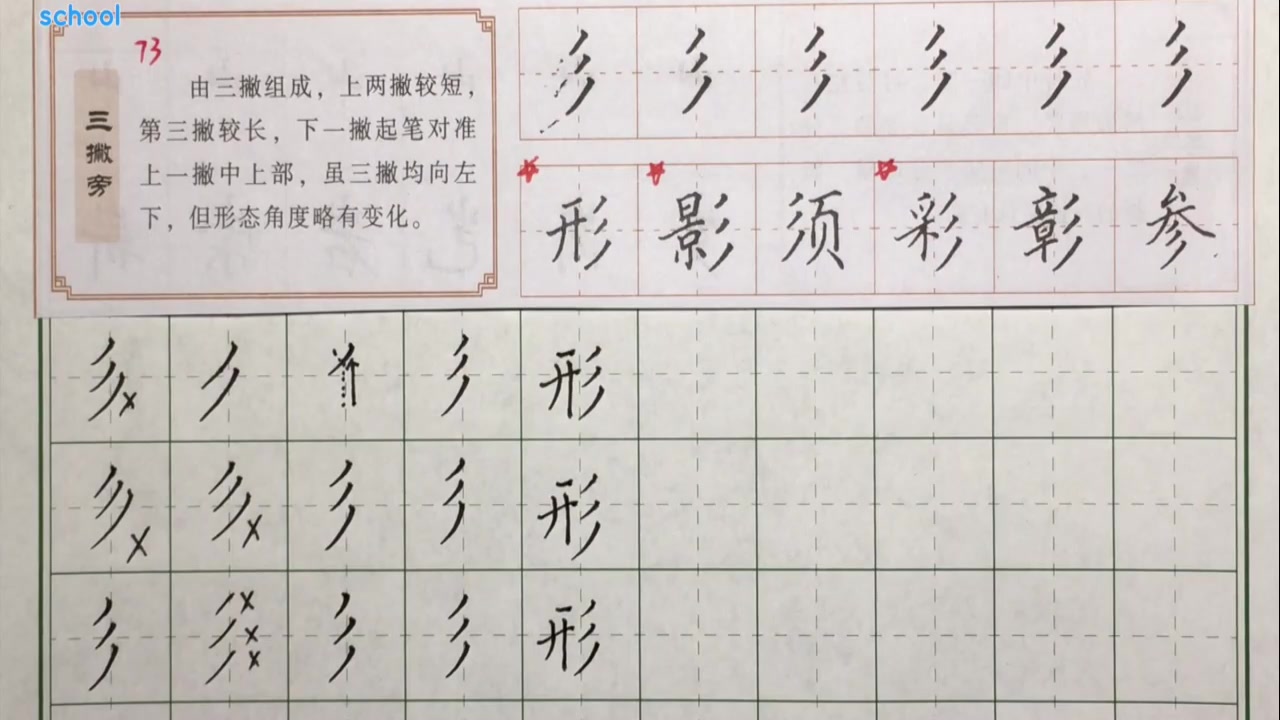 school
73
三撇旁
由三撇组成，上两撇较短，
第三撇较长，下一撇起笔对准
上一撇中上部，虽三撇均向左
下，但形态角度略有变化。
彡 彡 彡 彡 彡 彡
形 影 须 彩 彰 参
彡 彡 形
彡 彡 彡 彡 形
彡 彡 彡 彡 形